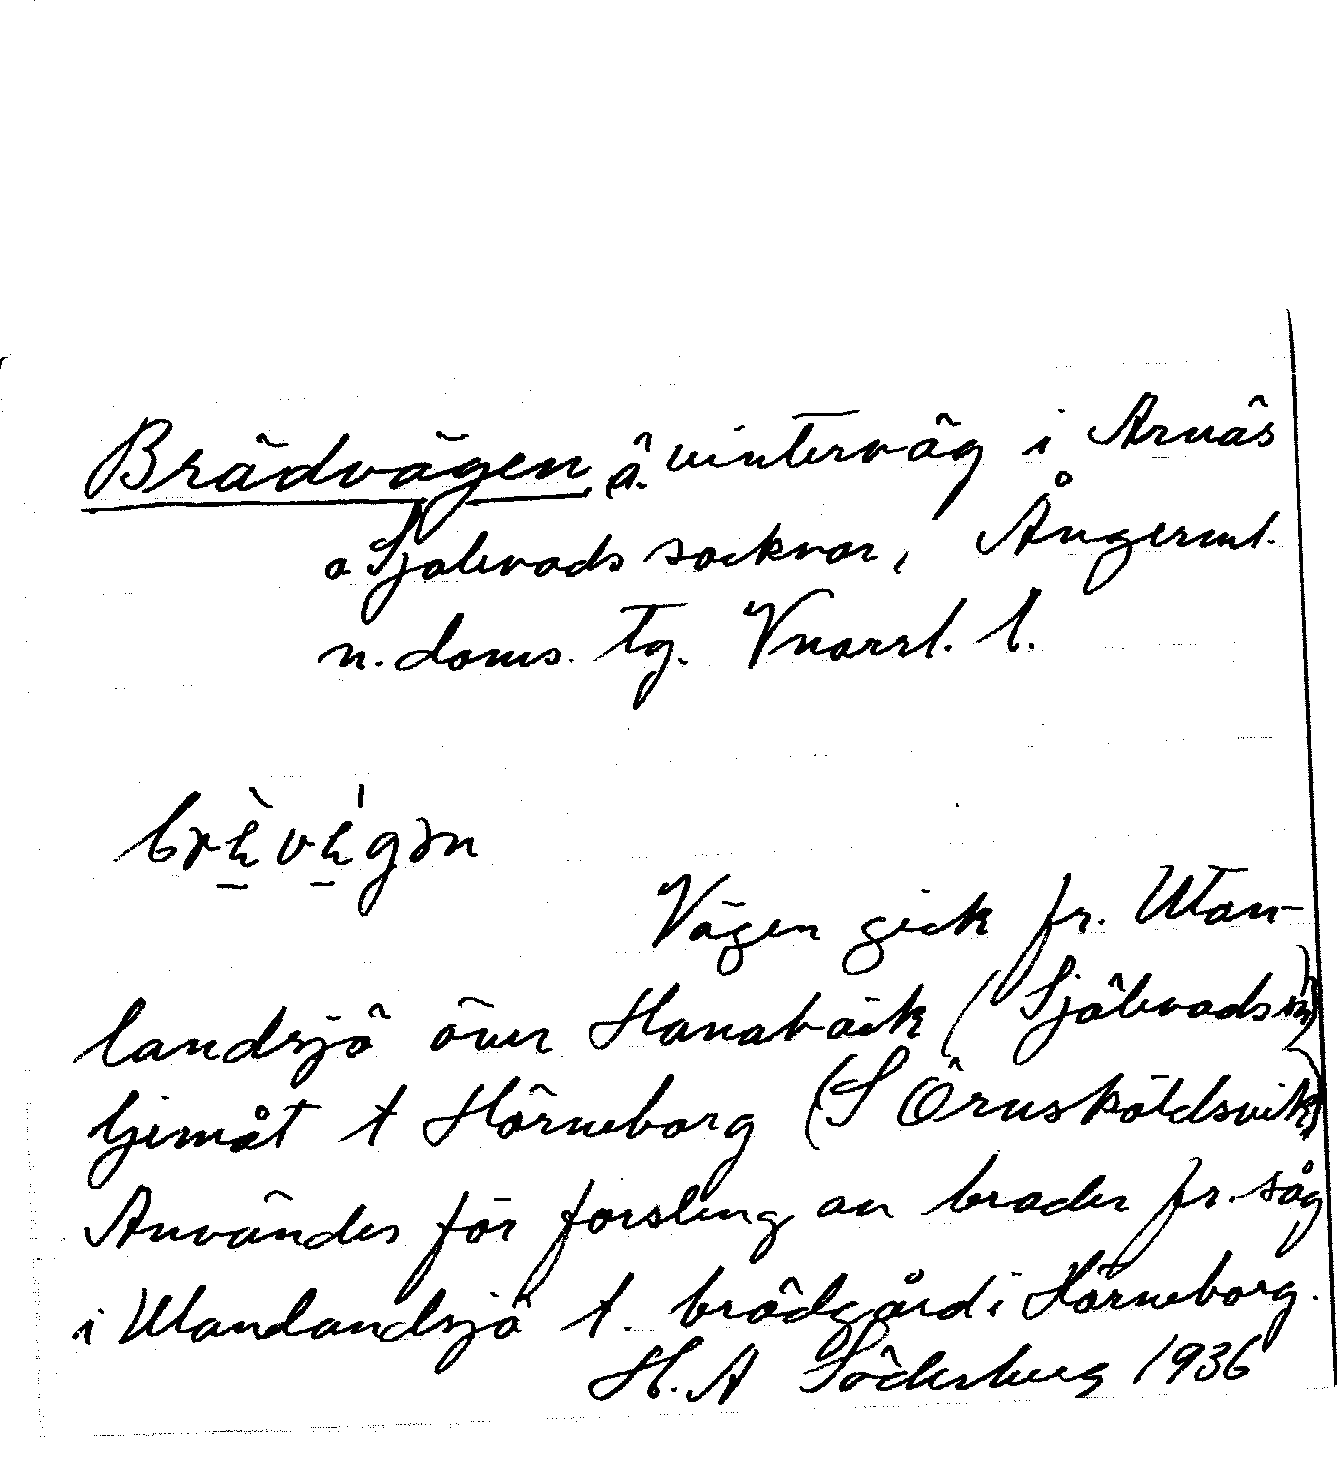 Brädvägen, ä. vinterväg i Arnäs
o Själevads socknar, Ångerml.
n. doms. tg. Vnorrl. l.
Vägen gick fr. Utan-
landsjö över Hanabäck (Själevads sn)
Gimåt t Hörneborg (S Örnsköldsvik)
Användes för forsling av bräder fr. såg
i Utanlandsjö t. brädgård i Hörneborg.
H. A Söderberg 1936